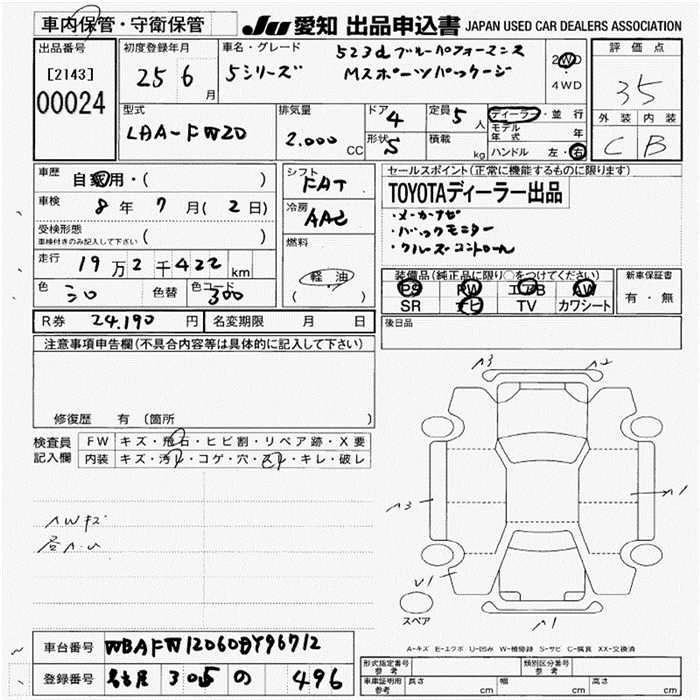 車内保管・守衛保管
JU 愛知 出品申込書 JAPAN USED CAR DEALERS ASSOCIATION
出品番号
[2143]
00024
初度登録年月
25 6 月
車名・グレード
523d ブルーパフォーマンス
5シリーズ Mスポーツパッケージ
2WD
4WD
評価点
35
外装 内装
C B
型式
LDA-FW20
排気量
2.000 CC
ドア 4
形状 5
定員 5 人
積載 kg
ディーラー・並行
モデル年式 年
ハンドル 左・右
車歴
自家用・( )
車検
8年 7月(2日)
受検形態
車検付きのみ記入して下さい ( )
走行
19万2千422km
色 シロ 色替 色コード 300
シフト
FAT
冷房
AAC
燃料
軽油
( )
セールスポイント(正常に機能するものに限ります)
TOYOTAディーラー出品
・メーカーナビ
・バックモニター
・クルーズコントロール
装備品(純正品に限り○をつけてください)
PS PW エアB AW
SR ナビ TV カワシート
新車保証書
有・無
R券 24.190 円 名変期限 月 日
後日品
注意事項申告欄(不具合内容等は具体的に記入して下さい)
修復歴 有 〔箇所 〕
検査員記入欄
FW キズ・飛石・ヒビ割・リペア跡・X要
内装 キズ・汚レ・コゲ・穴・スレ・キレ・破レ
AWキズ
A3 A2
A3 A1
U1 A1
スペア
A-キズ E-エクボ U-凹み W-補修跡 S-サビ C-腐食 XX-交換済
車台番号 WBAFW12060DY96712
登録番号 名古屋 305 の 496
形式指定番号 参考
類別区分番号 参考
車庫証明用 参考 長さ cm 幅 cm 高さ cm